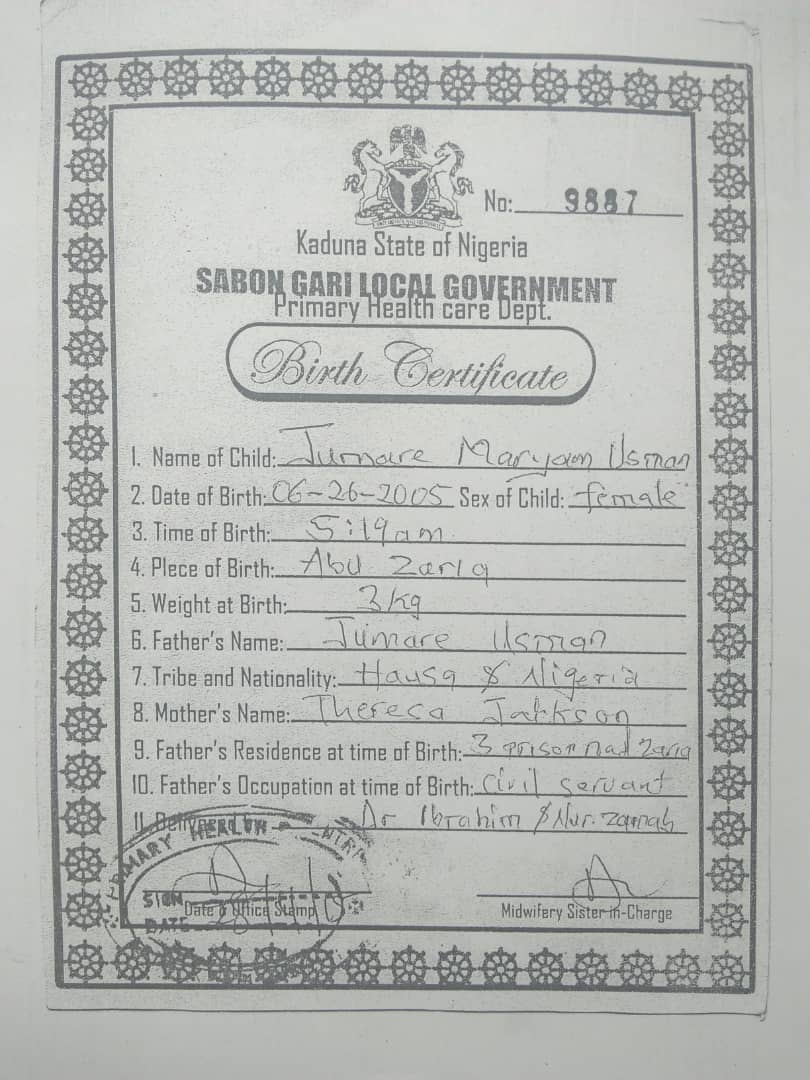 No: 9887
Kaduna State of Nigeria
SABON GARI LOCAL GOVERNMENT
Primary Health care Dept.
Birth Certificate
1. Name of Child: Jumare Maryam Usman
2. Date of Birth: 06-26-2005 Sex of Child: female
3. Time of Birth: 5:19am
4. Plece of Birth: Abu Zaria
5. Weight at Birth: 3kg
6. Father's Name: Jumare Usman
7. Tribe and Nationality: Hausa & Nigeria
8. Mother's Name: Theresa Jackson
9. Father's Residence at time of Birth: 3 prison Zaria
10. Father's Occupation at time of Birth: Civil servant
11. Delivered by Dr Ibrahim & Nur.
PRIMARY HEALTH
SIGN
DATE
Date & Office Stamp
Midwifery Sister in-Charge